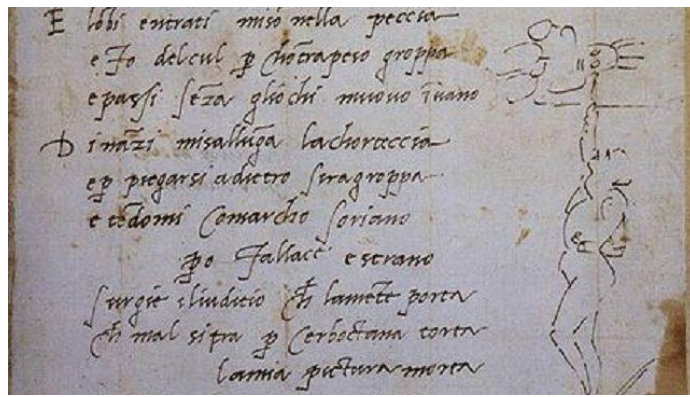 E lobi entrati miso nella peccia
e fo delcul p chōtrapeso groppa
e passi sēza gliochi muovo īvano
Dināzi misallūga lachorteccia
e p piegarsi adietro siragroppa
e tēdomi Comarcho soriano
po fallace e strano
surgie iliudicio ch lamēte porta
ch mal sitra p Cerboctana torta
lamia pictura morta